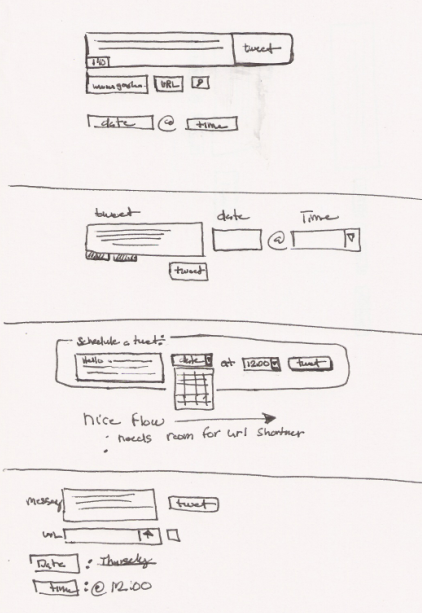 tweet
140
URL
date @ time
tweet date Time
@
tweet
Schedule a tweet:
Hello date at 12:00 tweet
nice flow
• needs room for url shortner
•
message tweet
URL
Date : Thursday
time : @ 12:00